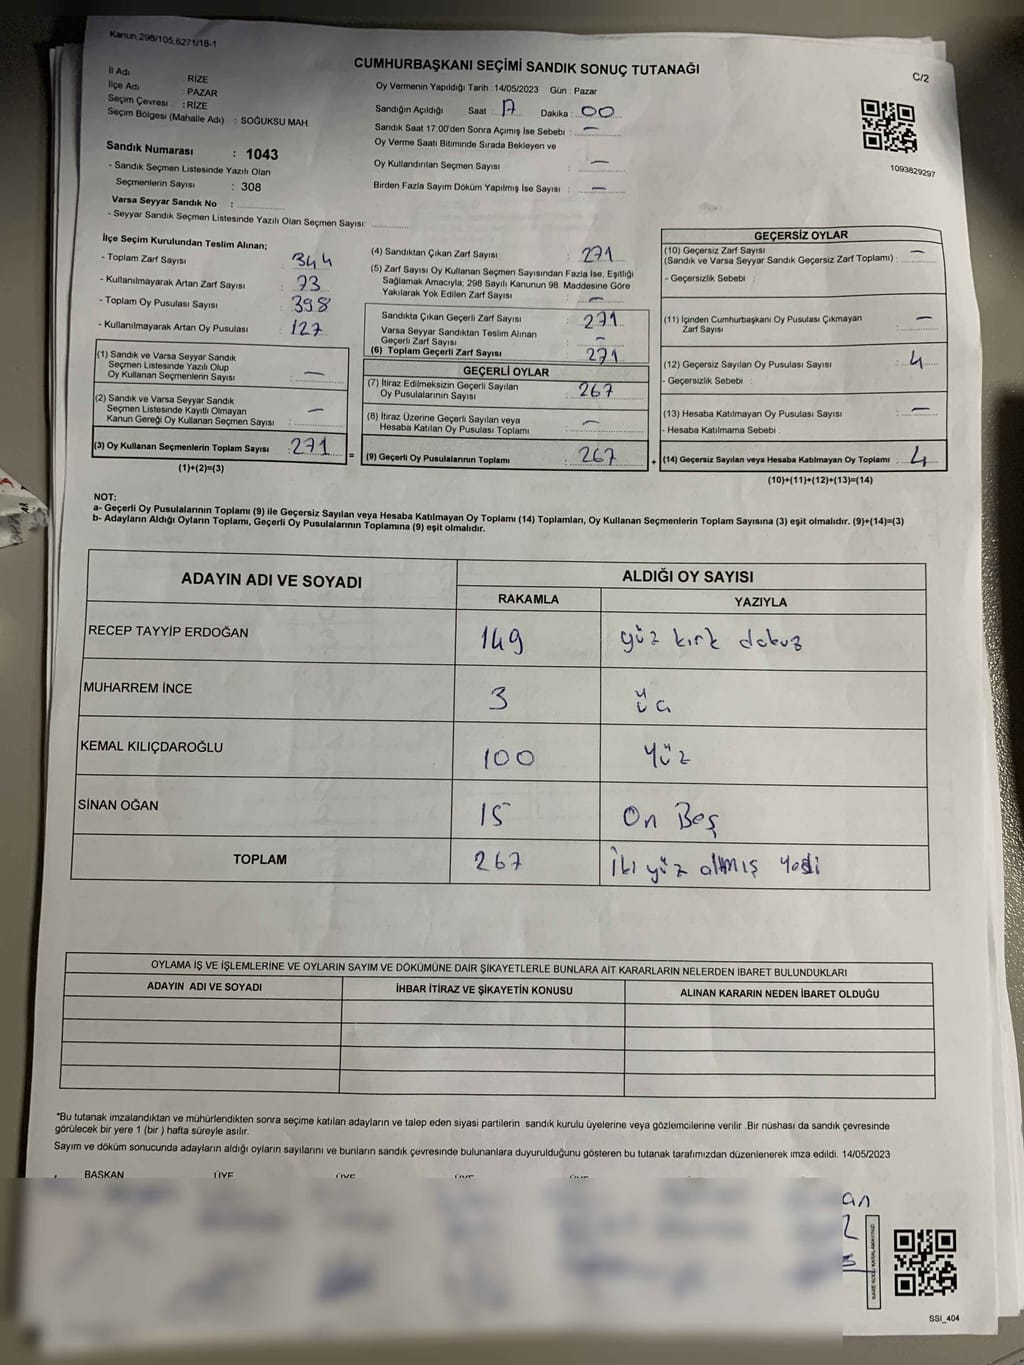 Kanun,298/105,6271/18-1
CUMHURBAŞKANI SEÇİMİ SANDIK SONUÇ TUTANAĞI
C/2
İl Adı : RİZE
İlçe Adı : PAZAR
Seçim Çevresi : RİZE
Seçim Bölgesi (Mahalle Adı) : SOĞUKSU MAH.
Oy Vermenin Yapıldığı Tarih : 14/05/2023 Gün : Pazar
Sandığın Açıldığı Saat : 17 Dakika : 00
Sandık Saat 17:00'den Sonra Açımış İse Sebebi : —
Oy Verme Saati Bitiminde Sırada Bekleyen ve
Oy Kullandırılan Seçmen Sayısı : —
Birden Fazla Sayım Döküm Yapılmış İse Sayısı : —
1093829297
Sandık Numarası : 1043
- Sandık Seçmen Listesinde Yazılı Olan
Seçmenlerin Sayısı : 308
Varsa Seyyar Sandık No :
- Seyyar Sandık Seçmen Listesinde Yazılı Olan Seçmen Sayısı:
İlçe Seçim Kurulundan Teslim Alınan;
- Toplam Zarf Sayısı : 344
- Kullanılmayarak Artan Zarf Sayısı : 73
- Toplam Oy Pusulası Sayısı : 398
- Kullanılmayarak Artan Oy Pusulası : 127
(1) Sandık ve Varsa Seyyar Sandık
Seçmen Listesinde Yazılı Olup
Oy Kullanan Seçmenlerin Sayısı : —
(2) Sandık ve Varsa Seyyar Sandık
Seçmen Listesinde Kayıtlı Olmayan
Kanun Gereği Oy Kullanan Seçmen Sayısı : —
(3) Oy Kullanan Seçmenlerin Toplam Sayısı : 271
(1)+(2)=(3)
=
(4) Sandıktan Çıkan Zarf Sayısı : 271
(5) Zarf Sayısı Oy Kullanan Seçmen Sayısından Fazla İse, Eşitliği
Sağlamak Amacıyla; 298 Sayılı Kanunun 98. Maddesine Göre
Yakılarak Yok Edilen Zarf Sayısı : —
Sandıkta Çıkan Geçerli Zarf Sayısı : 271
Varsa Seyyar Sandıktan Teslim Alınan
Geçerli Zarf Sayısı : —
(6) Toplam Geçerli Zarf Sayısı : 271
GEÇERLİ OYLAR
(7) İtiraz Edilmeksizin Geçerli Sayılan
Oy Pusulalarının Sayısı : 267
(8) İtiraz Üzerine Geçerli Sayılan veya
Hesaba Katılan Oy Pusulası Toplamı : —
(9) Geçerli Oy Pusulalarının Toplamı : 267
+
GEÇERSİZ OYLAR
(10) Geçersiz Zarf Sayısı
(Sandık ve Varsa Seyyar Sandık Geçersiz Zarf Toplamı) : —
- Geçersizlik Sebebi :
(11) İçinden Cumhurbaşkanı Oy Pusulası Çıkmayan
Zarf Sayısı : —
(12) Geçersiz Sayılan Oy Pusulası Sayısı : 4
- Geçersizlik Sebebi :
(13) Hesaba Katılmayan Oy Pusulası Sayısı : —
- Hesaba Katılmama Sebebi :
(14) Geçersiz Sayılan veya Hesaba Katılmayan Oy Toplamı : 4
(10)+(11)+(12)+(13)=(14)
NOT:
a- Geçerli Oy Pusulalarının Toplamı (9) ile Geçersiz Sayılan veya Hesaba Katılmayan Oy Toplamı (14) Toplamları, Oy Kullanan Seçmenlerin Toplam Sayısına (3) eşit olmalıdır. (9)+(14)=(3)
b- Adayların Aldığı Oyların Toplamı, Geçerli Oy Pusulalarının Toplamına (9) eşit olmalıdır.
ADAYIN ADI VE SOYADI
ALDIĞI OY SAYISI
RAKAMLA YAZIYLA
RECEP TAYYİP ERDOĞAN 149 yüz kırk dokuz
MUHARREM İNCE 3 üç
KEMAL KILIÇDAROĞLU 100 yüz
SİNAN OĞAN 15 On Beş
TOPLAM 267 İki yüz altmış yedi
OYLAMA İŞ VE İŞLEMLERİNE VE OYLARIN SAYIM VE DÖKÜMÜNE DAİR ŞİKAYETLERLE BUNLARA AİT KARARLARIN NELERDEN İBARET BULUNDUKLARI
ADAYIN ADI VE SOYADI İHBAR İTİRAZ VE ŞİKAYETİN KONUSU ALINAN KARARIN NEDEN İBARET OLDUĞU
*Bu tutanak imzalandıktan ve mühürlendikten sonra seçime katılan adayların ve talep eden siyasi partilerin sandık kurulu üyelerine veya gözlemcilerine verilir .Bir nüshası da sandık çevresinde
görülecek bir yere 1 (bir ) hafta süreyle asılır.
Sayım ve döküm sonucunda adayların aldığı oyların sayılarını ve bunların sandık çevresinde bulunanlara duyurulduğunu gösteren bu tutanak tarafımızdan düzenlenerek imza edildi. 14/05/2023
BAŞKAN ÜYE ÜYE ÜYE ÜYE
an
KARE KODU KARALAMAYINIZ!
SSI_404